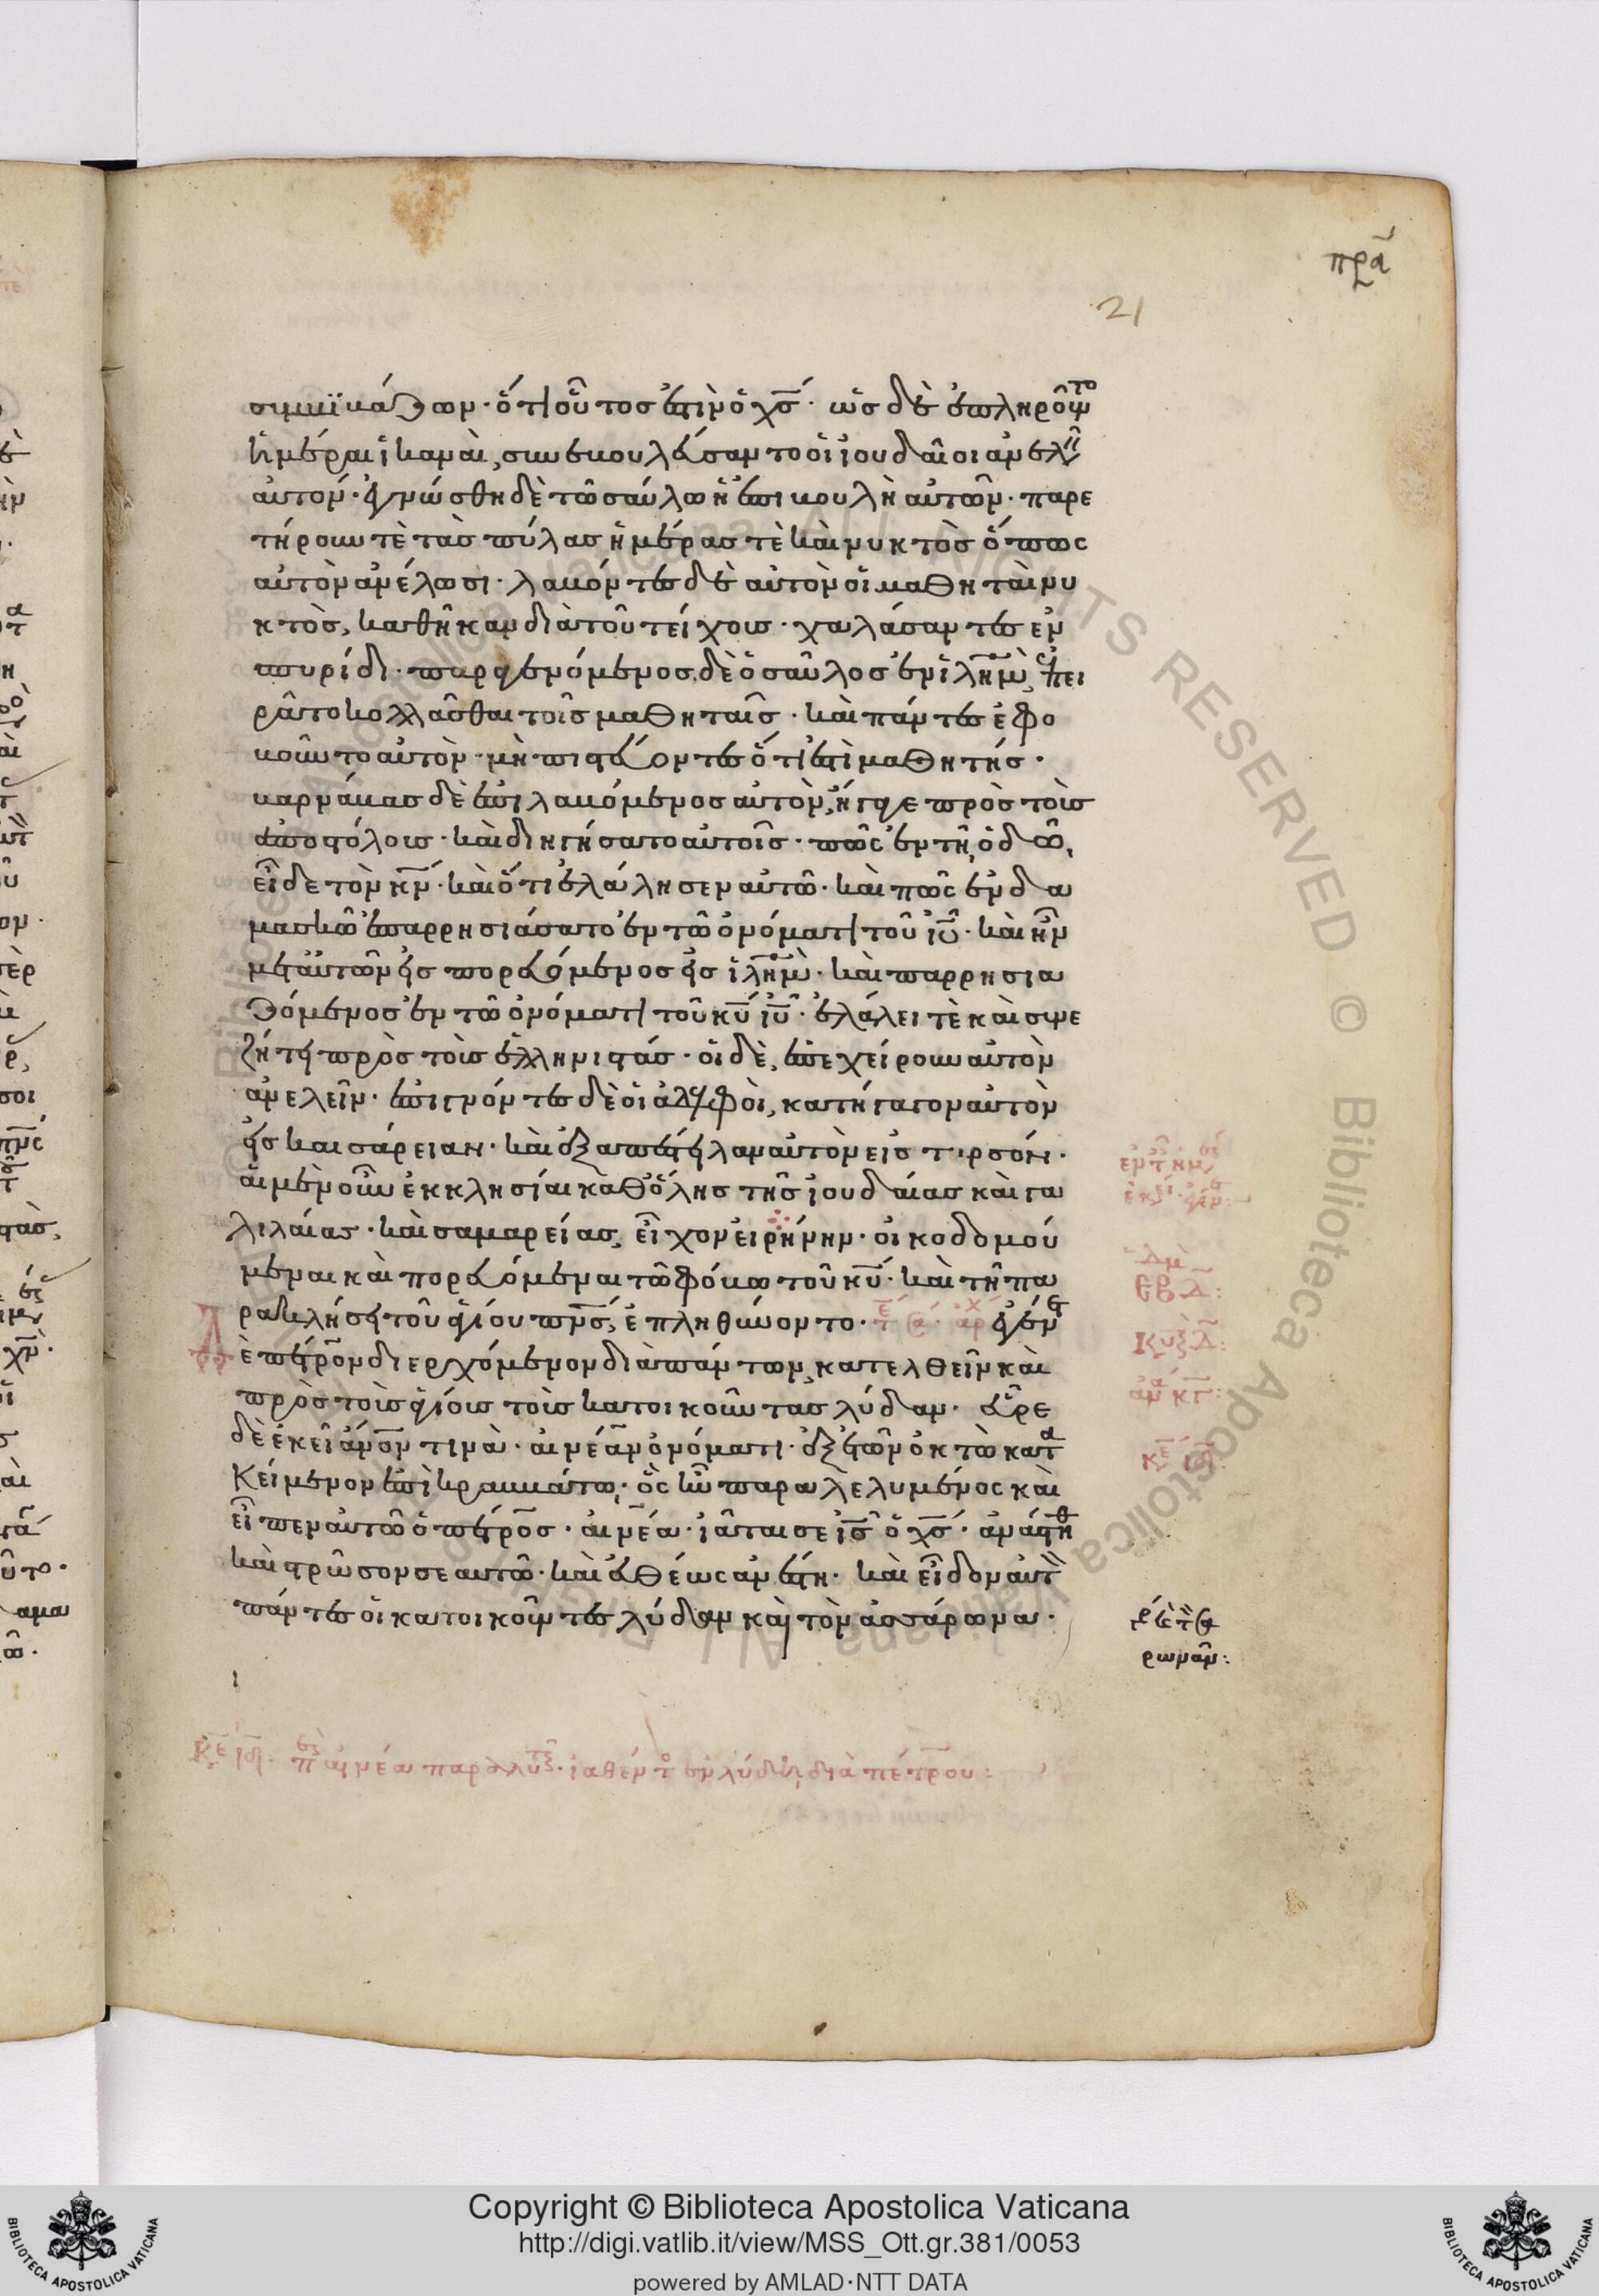 πρᾶ
21
συμβϊβάζων· ὅτι οὗτος ἐστὶν ὁ χς̅· ὡς δὲ ἐπληροῦντο
ἡμέραι ἱκαναὶ, συνεβουλεύσαντο οἱ ἰουδαῖοι ἀνελεῖν
αὐτόν· ἐγνώσθη δὲ τῶ σαύλω ἡ ἐπιβουλὴ αὐτῶν· παρε
τήρουν τὲ τὰς πύλας ἡμέρας τὲ καὶ νυκτὸς ὅπως
αὐτὸν ἀνέλωσι· λαβόντες δὲ αὐτὸν οἱ μαθηταὶ νυ
κτὸς, καθῆκαν διὰ τοῦ τείχους· χαλάσαντες ἐν
σπυρίδι· παραγενόμενος δὲ ὁ σαῦλος ἐν ἱλη̅μ̅, ἐπει
ρᾶτο κολλᾶσθαι τοῖς μαθηταῖς· καὶ πάντες ἐφο
βοῦντο αὐτὸν· μὴ πιστεύοντες ὅτι ἐστὶ μαθητής·
βαρνάβας δὲ ἐπιλαβόμενος αὐτὸν, ἤγαγε πρὸς τοὺς
ἀποστόλους· καὶ διηγήσατο αὐτοῖς· πῶς ἐν τῆ ὁδῶ,
εἶδε τὸν κν̅· καὶ ὅτι ἐλάλησεν αὐτῶ· καὶ πῶς ἐν δα
μασκῶ ἐπαρρησιάσατο ἐν τῶ ὀνόματι τοῦ ἰυ̅· καὶ ἦν
μετ αὐτῶν εἰσπορευόμενος εἰς ἱλη̅μ̅· καὶ παρρησια
ζόμενος ἐν τῶ ὀνόματι τοῦ κυ̅ ἰυ̅· ἐλάλει τὲ καὶ συνε
ζήτει πρὸς τοὺς ἑλληνιστάς· οἱ δὲ, ἐπεχείρουν αὐτὸν
ἀνελεῖν· ἐπιγνόντες δὲ οἱ ἀδελφοὶ, κατήγαγον αὐτὸν
εἰς καισάρειαν· καὶ ἐξαπέστειλαν αὐτὸν εἰς ταρσόν·
αἱ μὲν οὖν ἐκκλησίαι καθ ὅλης τῆς ἰουδαίας καὶ γα
λιλαίας· καὶ σαμαρείας, εἶχον εἰρήνην· οἰκοδομού
μεναι καὶ πορευόμεναι τῶ φόβω τοῦ κυ̅· καὶ τῆ πα
ρακλήσει τοῦ ἁγίου πνς̅, ἐπληθύνοντο· ἐγέν
ετο πέτρον διερχόμενον διὰ πάντων, κατελθεῖν καὶ
πρὸς τοὺς ἁγίους τοὺς κατοικοῦντας λύδαν· εὗρε
δὲ ἐκεῖ ἄνον τινὰ· αἰνέαν ὀνόματι· ἐξ ἐτῶν ὀκτὼ κατα
κείμενον ἐπὶ κραββάτω, ὃς ἦν παραλελυμένος καὶ
εἶπεν αὐτῶ ὁ πέτρος· αἰνέα· ἰᾶται σε ις̅ ὁ χς̅· ἀνάστηθ
καὶ στρῶσον σεαυτῶ· καὶ εὐθέως ἀνέστη· καὶ εἶδον αὐτ
πάντες οἱ κατοικοῦντες λύδαν καὶ τὸν ἀσσάρωνα·
ρωνᾶν:
αἰνέα παραλυτ ἰαθέντ ἐν λύδδη διὰ πέτρου:
Copyright © Biblioteca Apostolica Vaticana
http://digi.vatlib.it/view/MSS_Ott.gr.381/0053
powered by AMLAD·NTT DATA